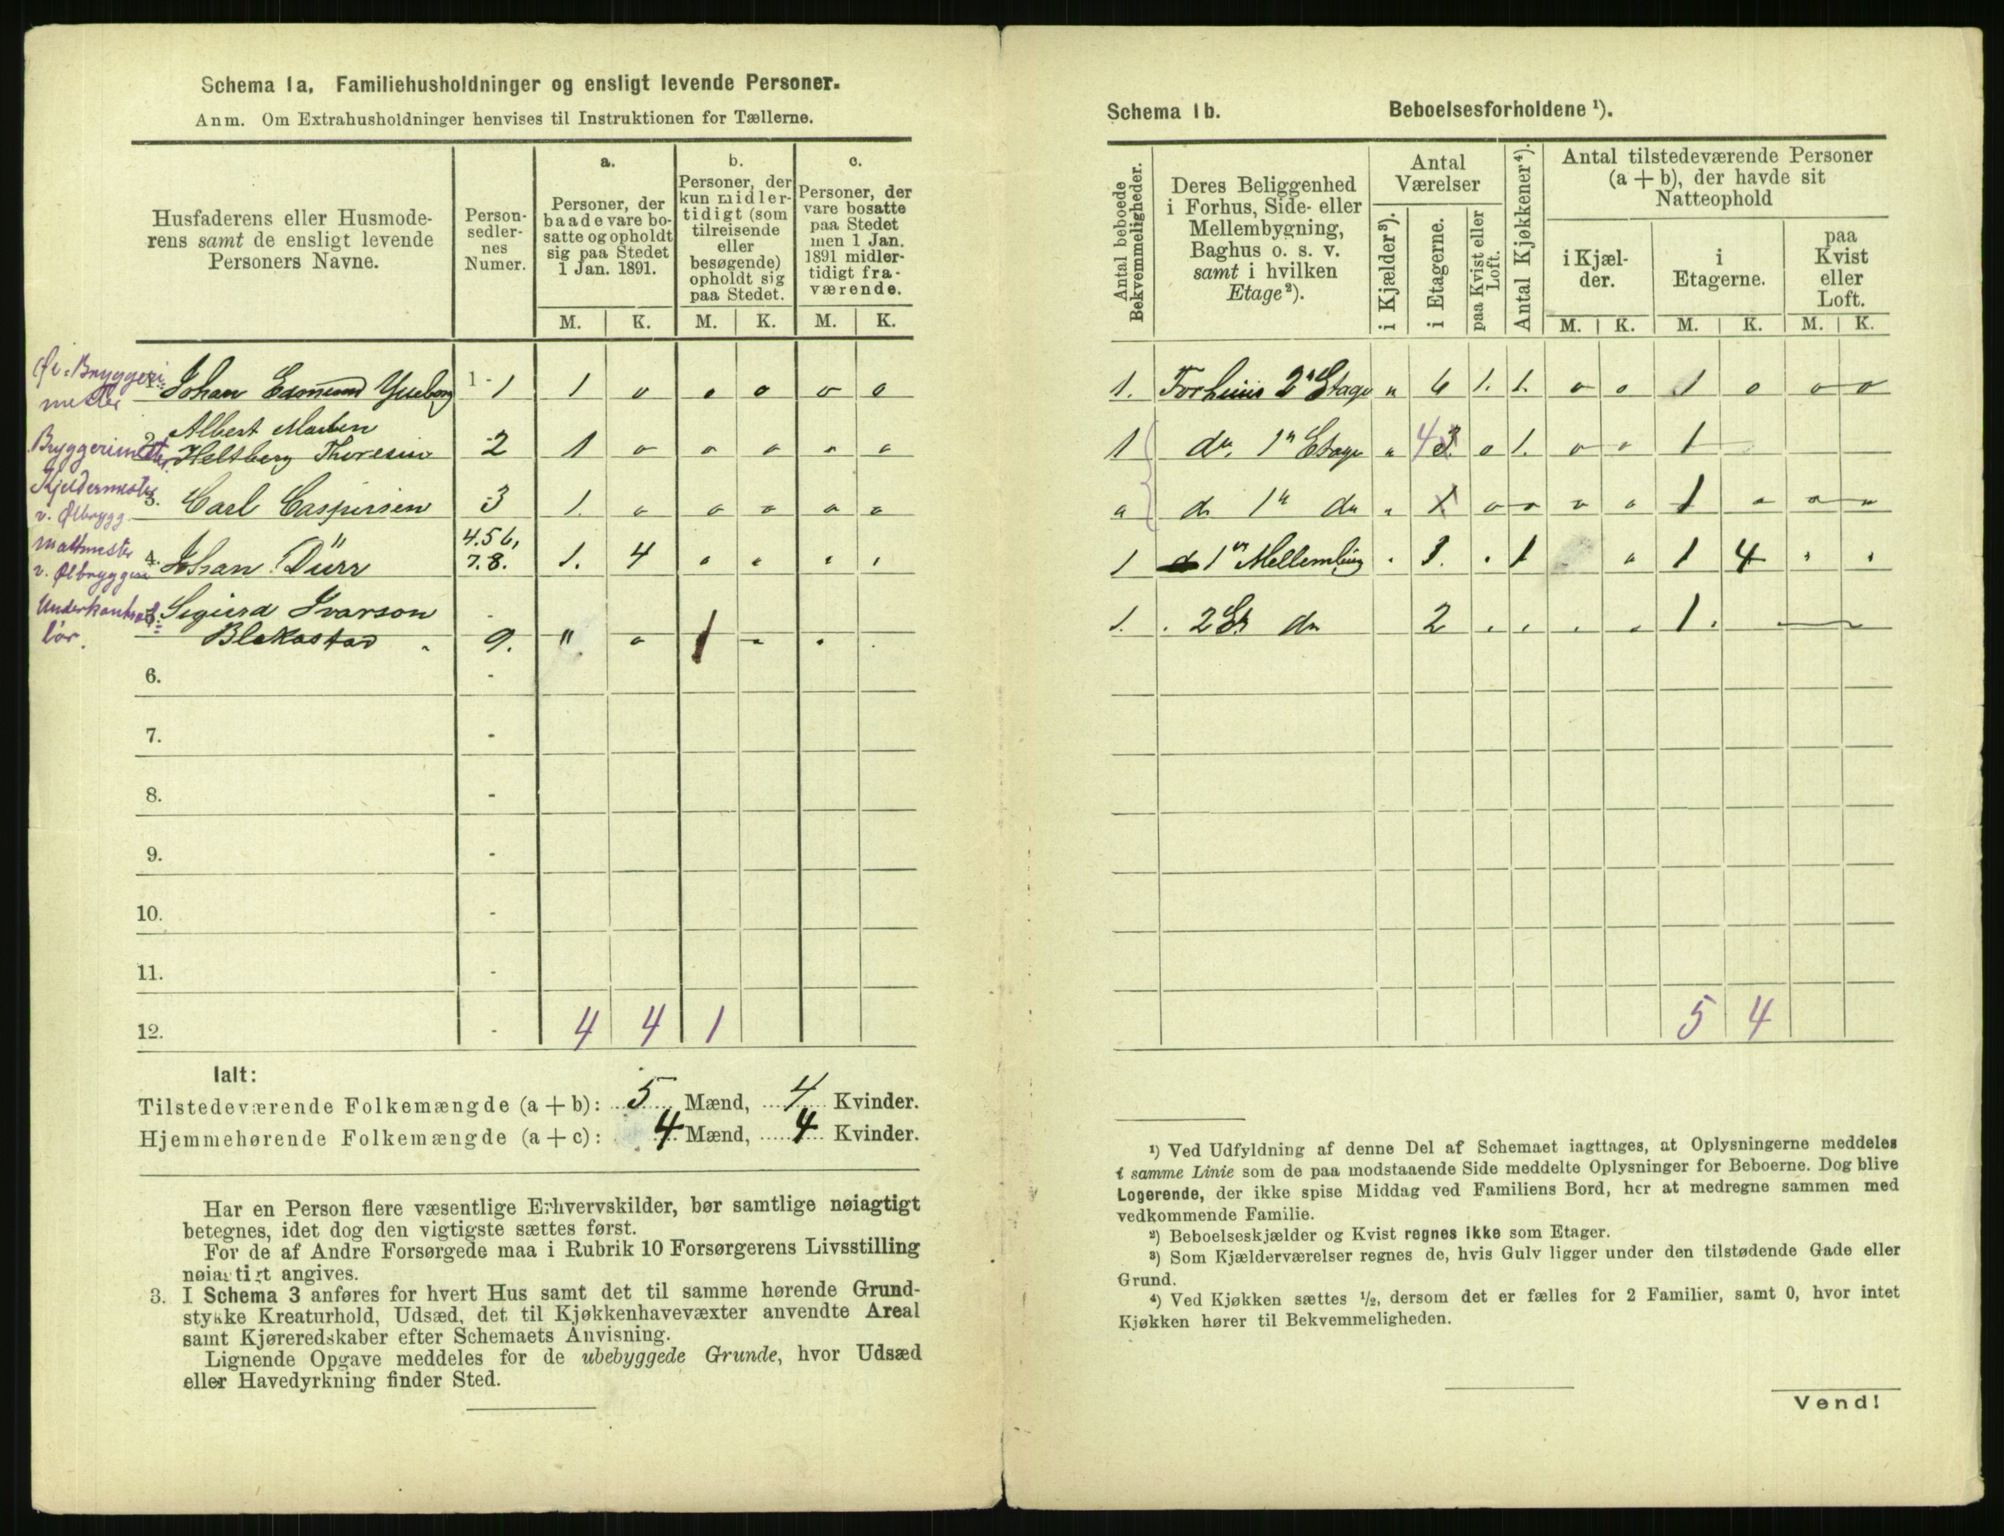 Schema 1a. Familiehusholdninger og ensligt levende Personer.
Anm. Om Extrahusholdninger henvises til Instruktionen for Tællerne.
Husfaderens eller Husmode-
rens samt de ensligt levende
Personers Navne.
Person-
sedler-
nes
Numer.
a.
Personer, der
baade vare bo-
satte og opholdt
sig paa Stedet
1 Jan. 1891.
b.
Personer, der
kun midler-
tidigt (som
tilreisende
eller
besøgende)
opholdt sig
paa Stedet.
c.
Personer, der
vare bosatte
paa Stedet
men 1 Jan.
1891 midler-
tidigt fra-
værende.
M. K. M. K. M. K.
Bryggeri
mester
1. Johan Edmund 1 - 1 1 0 0 0 0 0
Bryggerimester
2. Albert Morten
Heltberg Thoresen 2 1 0 0 0 0 0
Kjeldermester
v. Ølbrygg.
3. Carl Caspersen 3 1. 0 0 0 0 0
Maltmester
v. Ølbryggeri
4. Johan Dürr 4. 5 6,
7. 8. 1. 4
Underkontrol
lör.
5. Sigurd Ivarson
Blakastad 9. " 0 1 - . .
6. -
7. -
8. -
9. -
10. -
11. -
12. - 4 4 1
Ialt:
Tilstedeværende Folkemængde (a + b): 5 Mænd, 4 Kvinder.
Hjemmehørende Folkemængde (a + c): 4 Mænd, 4 Kvinder.
Har en Person flere væsentlige Erhvervskilder, bør samtlige nøiagtigt
betegnes, idet dog den vigtigste sættes først.
For de af Andre Forsørgede maa i Rubrik 10 Forsørgerens Livsstilling
nøiagtigt angives.
3. I Schema 3 anføres for hvert Hus samt det til samme hørende Grund-
stykke Kreaturhold, Udsæd, det til Kjøkkenhavevæxter anvendte Areal
samt Kjøreredskaber efter Schemaets Anvisning.
Lignende Opgave meddeles for de ubebyggede Grunde, hvor Udsæd
eller Havedyrkning finder Sted.
Schema 1b. Beboelsesforholdene ¹).
Antal beboede
Bekvemmeligheder.
Deres Beliggenhed
i Forhus, Side- eller
Mellembygning,
Baghus o. s. v.
samt i hvilken
Etage²).
Antal
Værelser
i Kjælder³).
i Etagerne.
paa Kvist eller
Loft.
Antal Kjøkkener⁴).
Antal tilstedeværende Personer
(a + b), der havde sit
Natteophold
i Kjæl-
der.
i
Etagerne.
paa
Kvist
eller
Loft.
M. K. M. K. M. K.
1. Forhuus 2" Etage " 6 1. 1. 0 0 1 0 0 0
1 do. 1" Etage " 4 3. 0 1. 0 0 1
0 do 1" do " 1 0 0 0 0 1 0 0 0
1 do 1" Mellembng . 3. . 1 0 1 4 " .
1. . 2 Et do 2 . . . . 1.
5 4
¹) Ved Udfyldning af denne Del af Schemaet iagttages, at Oplysningerne meddeles
i samme Linie som de paa modstaaende Side meddelte Oplysninger for Beboerne. Dog blive
Logerende, der ikke spise Middag ved Familiens Bord, her at medregne sammen med
vedkommende Familie.
²) Beboelseskjælder og Kvist regnes ikke som Etager.
³) Som Kjælderværelser regnes de, hvis Gulv ligger under den tilstødende Gade eller
Grund.
⁴) Ved Kjøkken sættes ½, dersom det er fælles for 2 Familier, samt 0, hvor intet
Kjøkken hører til Bekvemmeligheden.
Vend!